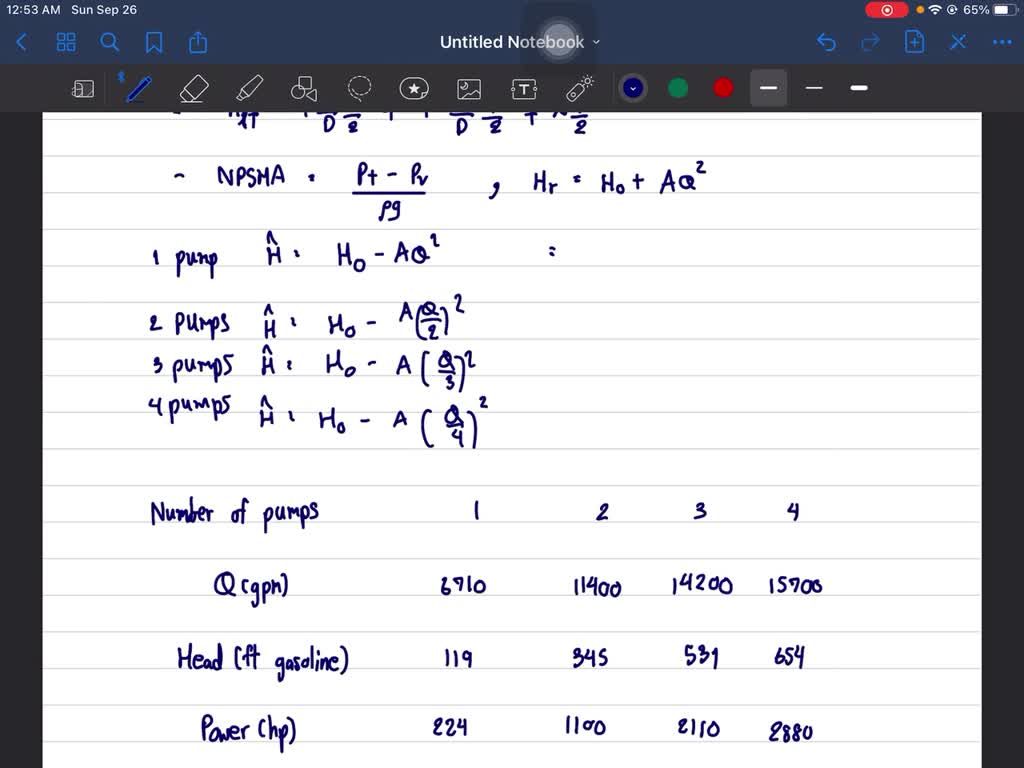 12:53 AM Sun Sep 26 65%
Untitled Notebook
- NPSHA = Pt - Pv / ρg , Hr = Ho + AQ²
1 pump Ĥ = Ho - AQ² =
2 pumps Ĥ = Ho - A(Q/2)²
3 pumps Ĥ = Ho - A(Q/3)²
4 pumps Ĥ = Ho - A(Q/4)²
Number of pumps 1 2 3 4
Q (gpm) 6710 11400 14200 15700
Head (ft gasoline) 119 345 531 654
Power (hp) 224 1100 2110 2880